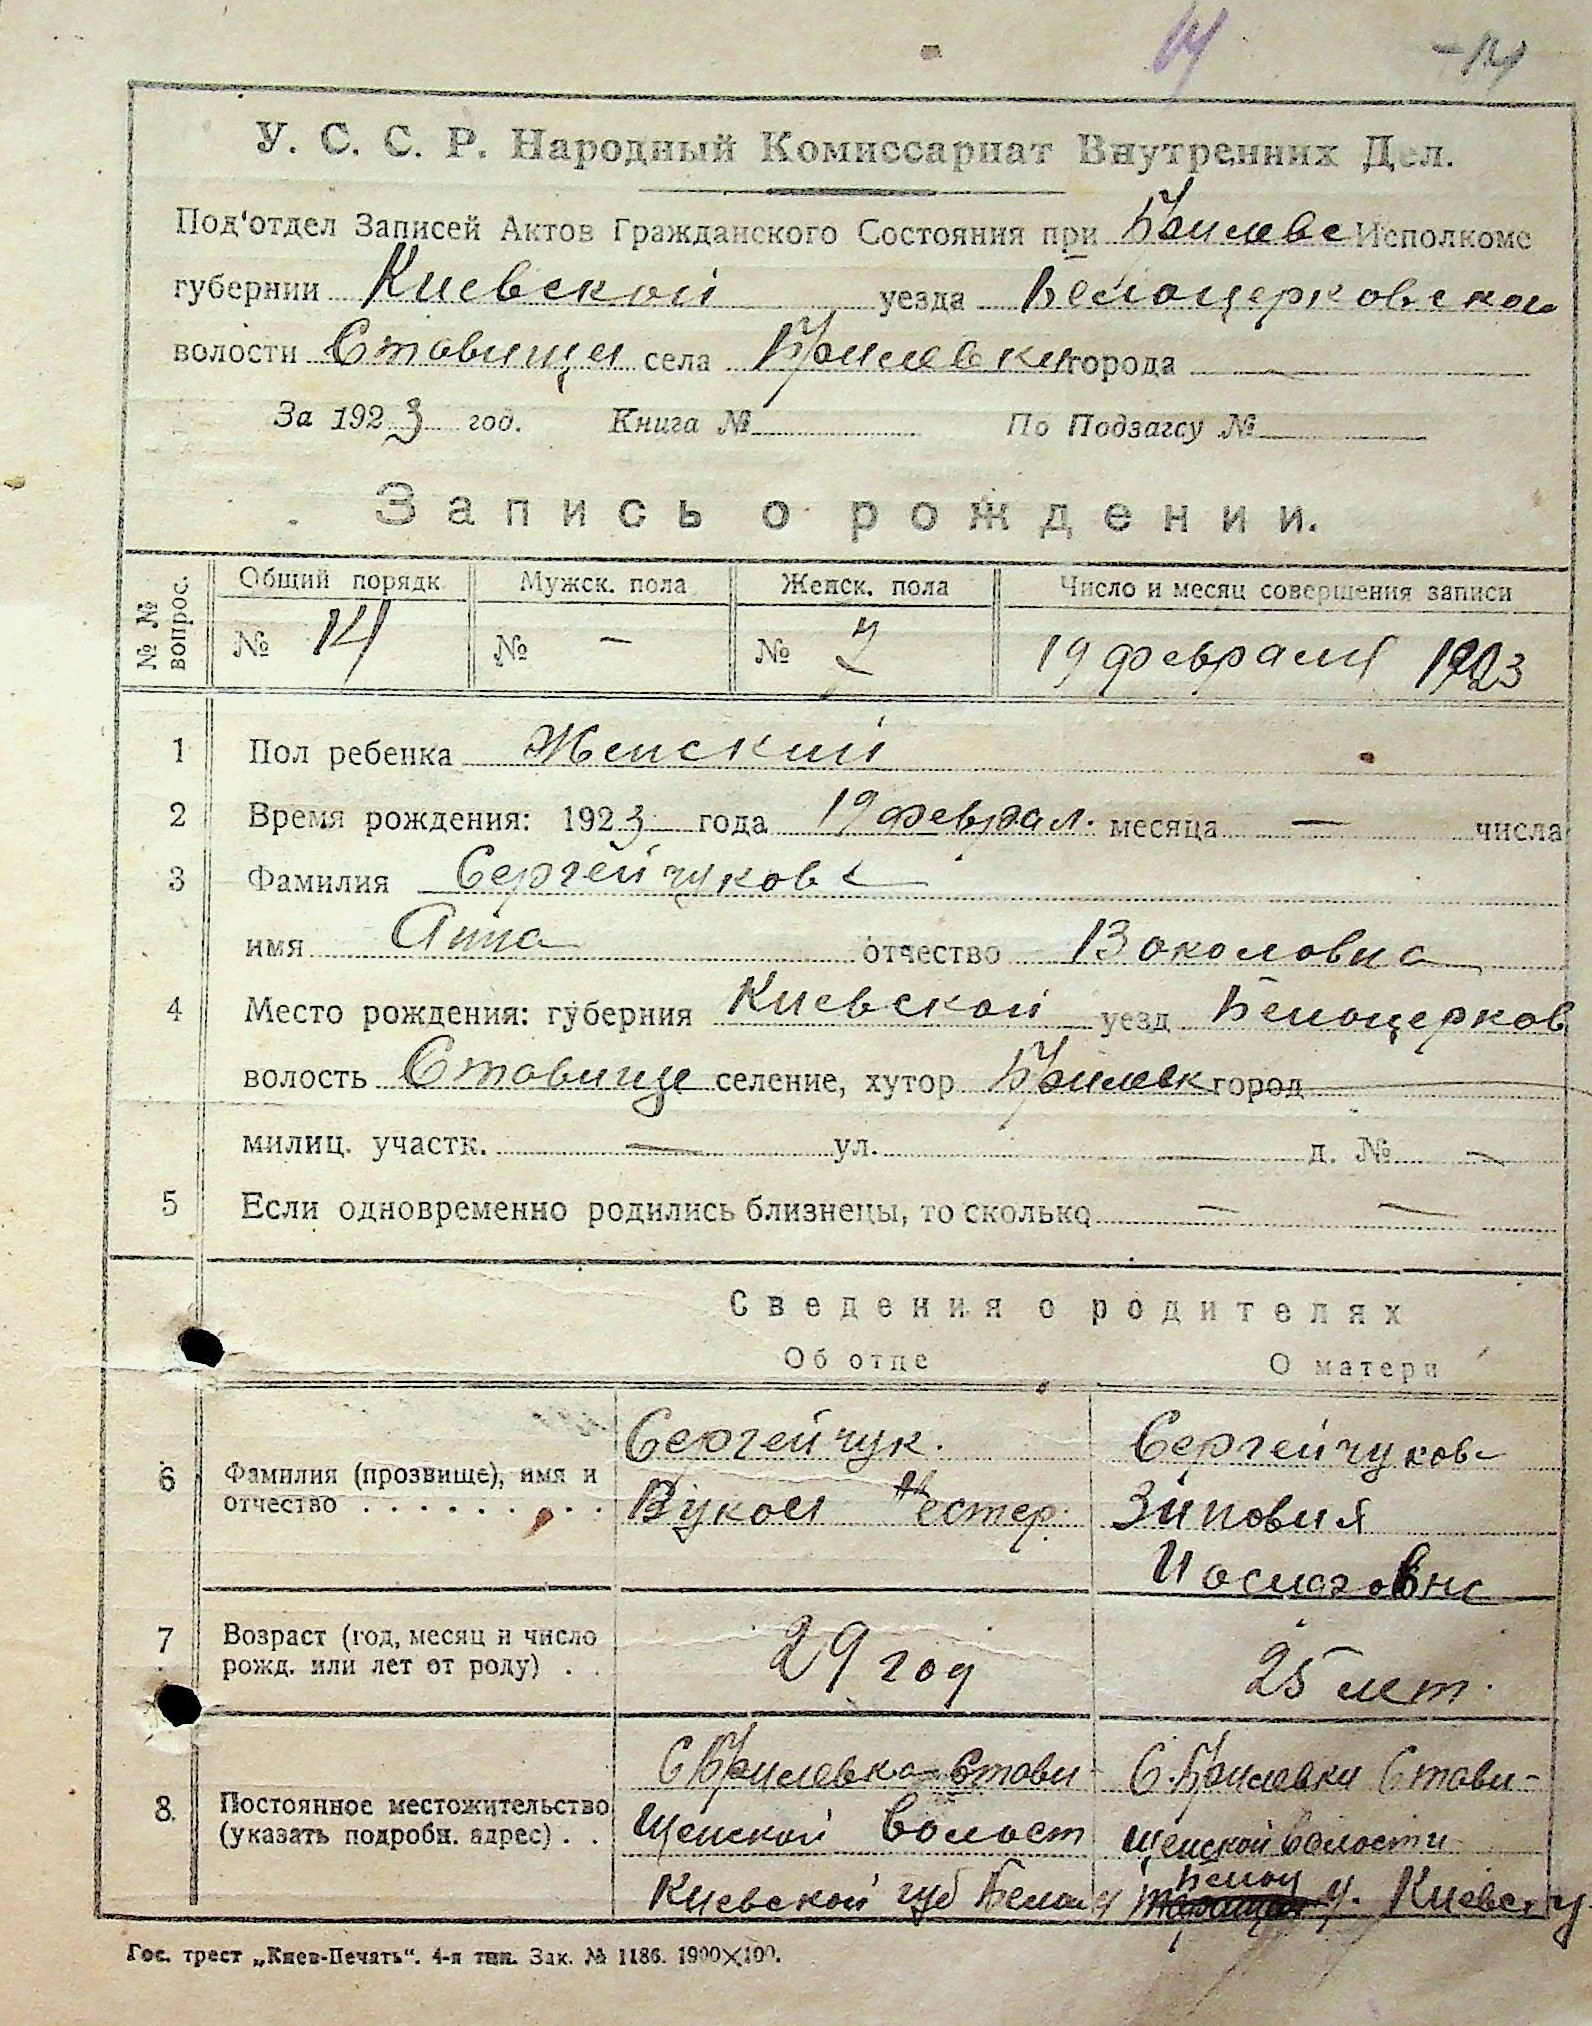 14 -14
У. С. С. Р. Народный Комиссариат Внутренних Дел.
Под'отдел Записей Актов Гражданского Состояния при Брилевс Исполкоме
губернии Киевской уезда Белоцерковской
волости Ставищи села Брилевки города —
За 1923 год. Книга № По Подзагсу №
Запись о рождении.
№ № вопрос. Общий порядк Мужск. пола Женск. пола Число и месяц совершения записи
№ 14 № — № 7 19 февраля 1923
1 Пол ребенка Женский
2 Время рождения: 1923 года 19 феврал. месяца — числа
3 Фамилия Сергейчукова
имя Анна отчество Воколовна
4 Место рождения: губерния Киевской уезд Белоцерков
волость Ставище селение, хутор Брилевк город
милиц. участк. — ул. — д. № —
5 Если одновременно родились близнецы, то сколько — —
Сведения о родителях
Об отце О матери
6 Фамилия (прозвище), имя и отчество . . . . . . . . . Сергейчук. Вукол Нестер. Сергейчукова Зиновия
7 Возраст (год, месяц и число рожд. или лет от роду) . . 29 год 25 лет.
8 Постоянное местожительство (указать подробн. адрес) . . С Брилевка Стави
щенской волост Киевской губ Белоц С. Брилевки Стави-
щенской волости Белоц у. Киевс г
Гос. трест „Киев-Печать“. 4-я тип. Зак. № 1186. 1900×100.